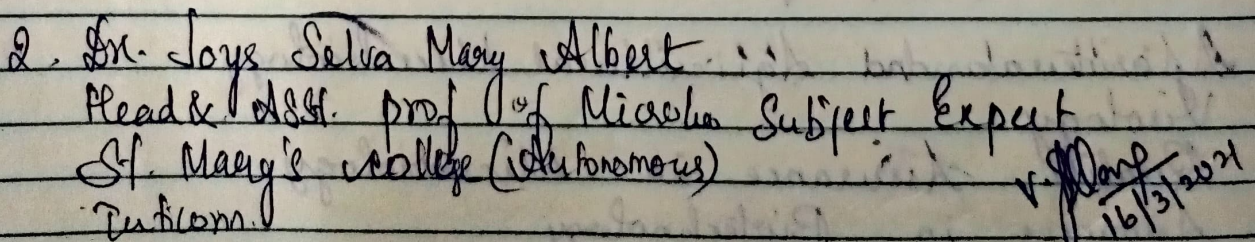 2. Dr. Joys Selva Mary Albert
Head & Asst. prof of Microbio Subject Expert
St. Mary's college (Autonomous)
Tuticorin.
16/3/2021